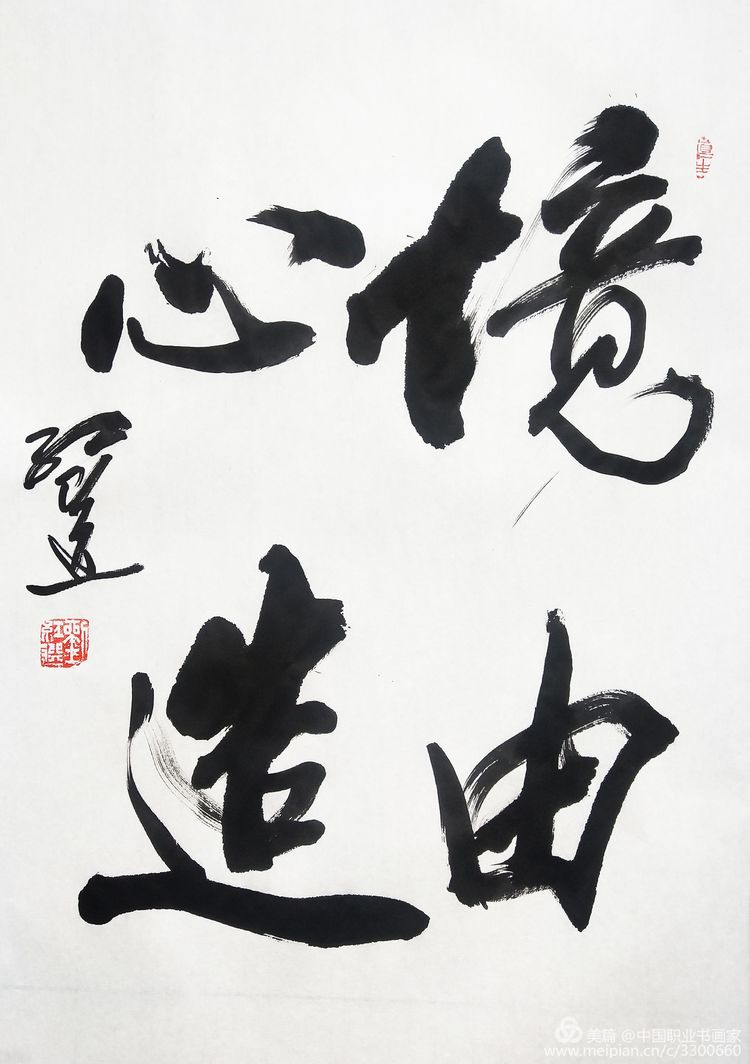 境由
心造
美篇 @中国职业书画家
www.meipian.cn/c/3300660